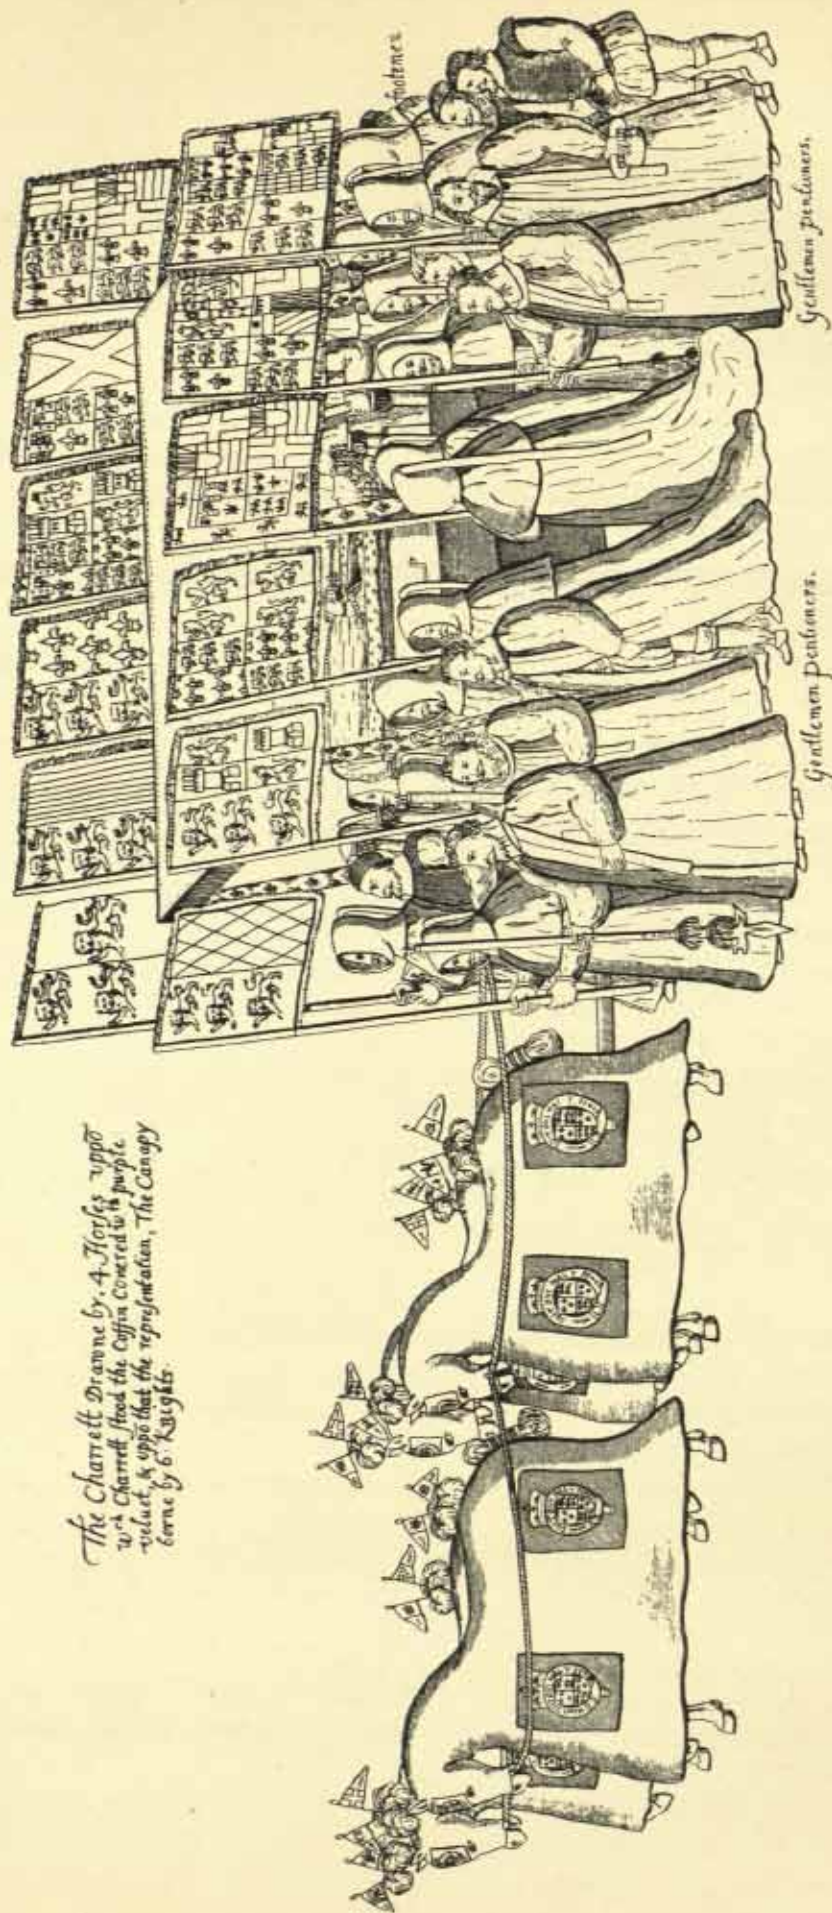 The Charrett Drawne by .4. Horses vppō
wch Charrett stood the Coffin Covered wth purple
veluet, & vppō that the representation, The Canapy
borne by 6 Knights.
footemen
Gentlemen pentioners.
Gentlemen pentioners.